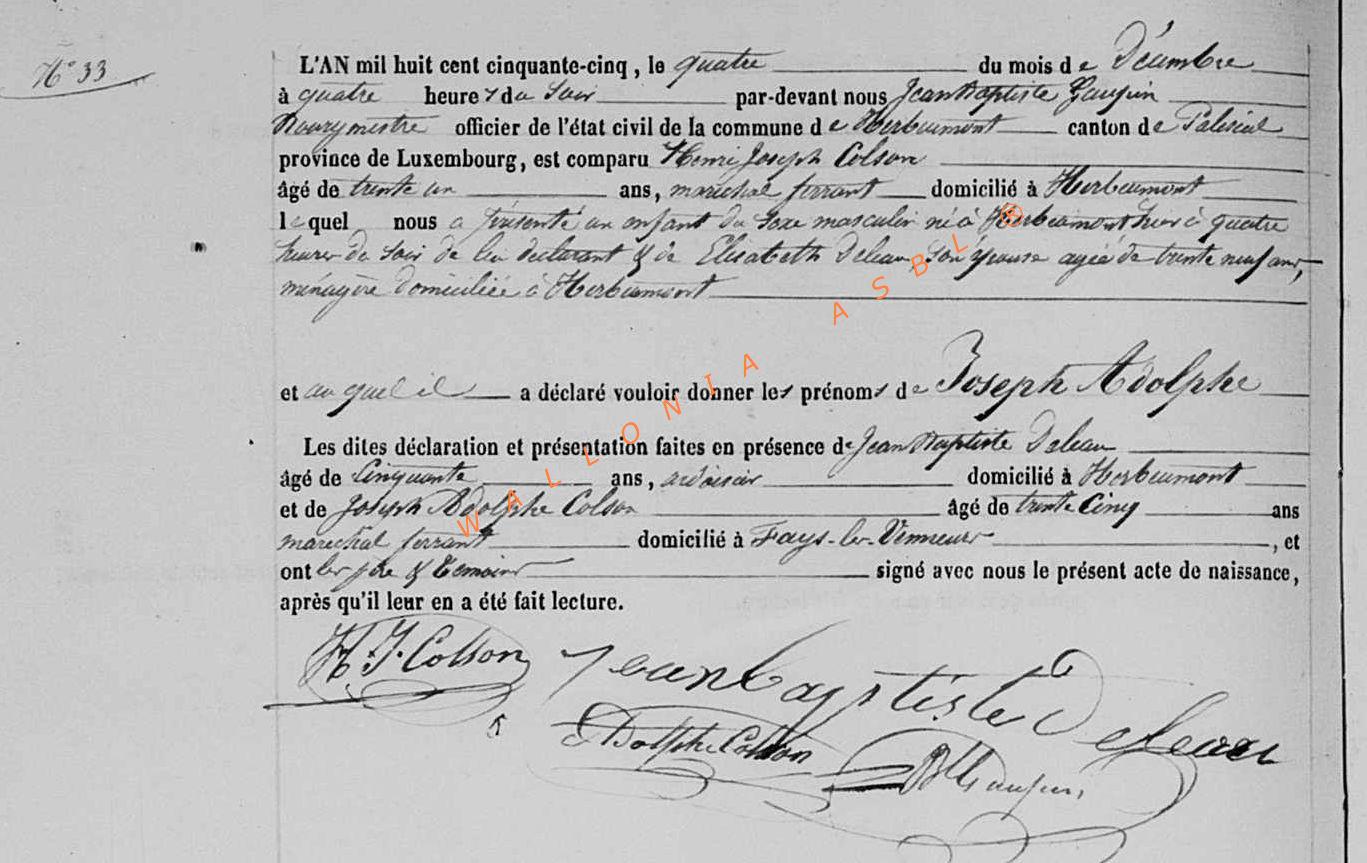 N° 33
L'AN mil huit cent cinquante-cinq, le quatre du mois de Décembre
à quatre heures du Soir par-devant nous Jean Baptiste
Bourgmestre officier de l'état civil de la commune de Herbeumont canton de Paliseul
province de Luxembourg, est comparu Henri Joseph Colson
âgé de trente un ans, maréchal ferrant domicilié à Herbeumont
lequel nous a présenté un enfant du Sexe masculin né à Herbeumont hier à quatre
heures du Soir de lui déclarant & de Elisabeth Deleau, Son épouse agée de trente neuf ans,
ménagère domiciliée à Herbeumont
et auquel il a déclaré vouloir donner les prénoms de Joseph Adolphe
Les dites déclaration et présentation faites en présence de Jean Baptiste Deleau
âgé de Cinquante ans, ardoisier domicilié à Herbeumont
et de Joseph Adolphe Colson âgé de trente Cinq ans
maréchal ferrant domicilié à Fays-les-Veneurs, et
ont les père & témoins signé avec nous le présent acte de naissance,
après qu'il leur en a été fait lecture.
H. J. Colson Jean baptiste Deleau
Adolphe Colson
WALLONIA ASBL ®